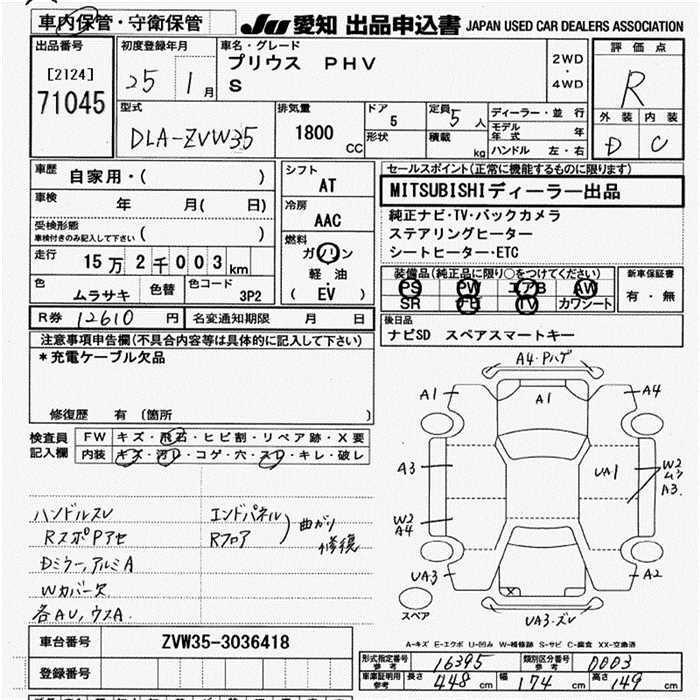 車内保管・守衛保管
JU 愛知 出品申込書 JAPAN USED CAR DEALERS ASSOCIATION
出品番号
[2124]
71045
初度登録年月
25 1月
車名・グレード
プリウス PHV
S
2WD
・
4WD
評価点
R
外装 内装
D C
型式
DLA-ZVW35
排気量
1800
CC
ドア
5
形状
定員
5人
積載
kg
ディーラー・並行
モデル年式 年
ハンドル 左・右
車歴
自家用・( )
車検
年 月( 日)
受検形態
車検付きのみ記入して下さい ( )
走行
15万2千003km
色
ムラサキ
色替
色コード
3P2
シフト
AT
冷房
AAC
燃料
ガソリン
軽油
( EV )
セールスポイント(正常に機能するものに限ります)
MITSUBISHIディーラー出品
純正ナビ・TV・バックカメラ
ステアリングヒーター
シートヒーター・ETC
装備品(純正品に限り○をつけてください)
PS PW エアB AW
SR TV カワシート
新車保証書
有・無
R券 12610 円
名変通知期限 月 日
後日品
ナビSD スペアスマートキー
注意事項申告欄(不具合内容等は具体的に記入して下さい)
*充電ケーブル欠品
修復歴 有(箇所 )
検査員
記入欄
FW キズ・飛石・ヒビ割・リペア跡・X要
内装 キズ・汚レ・コゲ・穴・スレ・キレ・破レ
ハンドルスレ
RスポPアセ
Dミラー,アルミA
Wカバー欠
各AU,ウスA.
エンドパネル
Rフロア
曲がり
修復
A4・Pハゲ
A1
A1
A4
A3
UA1
W2
ムラ
A3.
W2
A4
UA3
A2
X
スペア
UA3・ズレ
A-キズ E-エクボ U-凹み W-補修跡 S-サビ C-腐食 XX-交換済
車台番号
ZVW35-3036418
登録番号
形式指定番号
参考
16395
類別区分番号
参考
0003
車庫証明用
参考
長さ 448 cm
幅 174 cm
高さ 149 cm